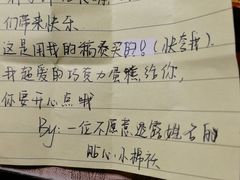 们带来快乐
这是用我的稿费买的!(快夸我)
我超爱的巧克力蛋糕给你,
你要开心点哦
By:一位不愿意透露姓名的
贴心小棉袄